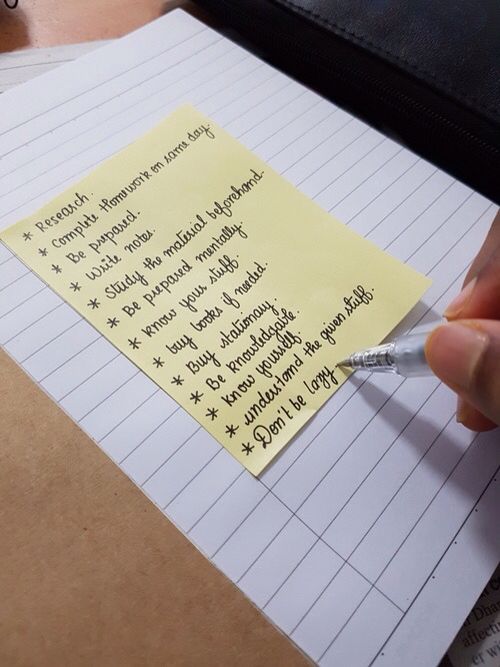 * Research.
* Complete Homework on same day.
* Be prepared.
* Write notes.
* Study the material beforehand.
* Be prepared mentally.
* know your stuff.
* buy books if needed.
* Buy stationary.
* Be knowledgable.
* know yourself.
* understand the given stuff.
* Don't be lazy